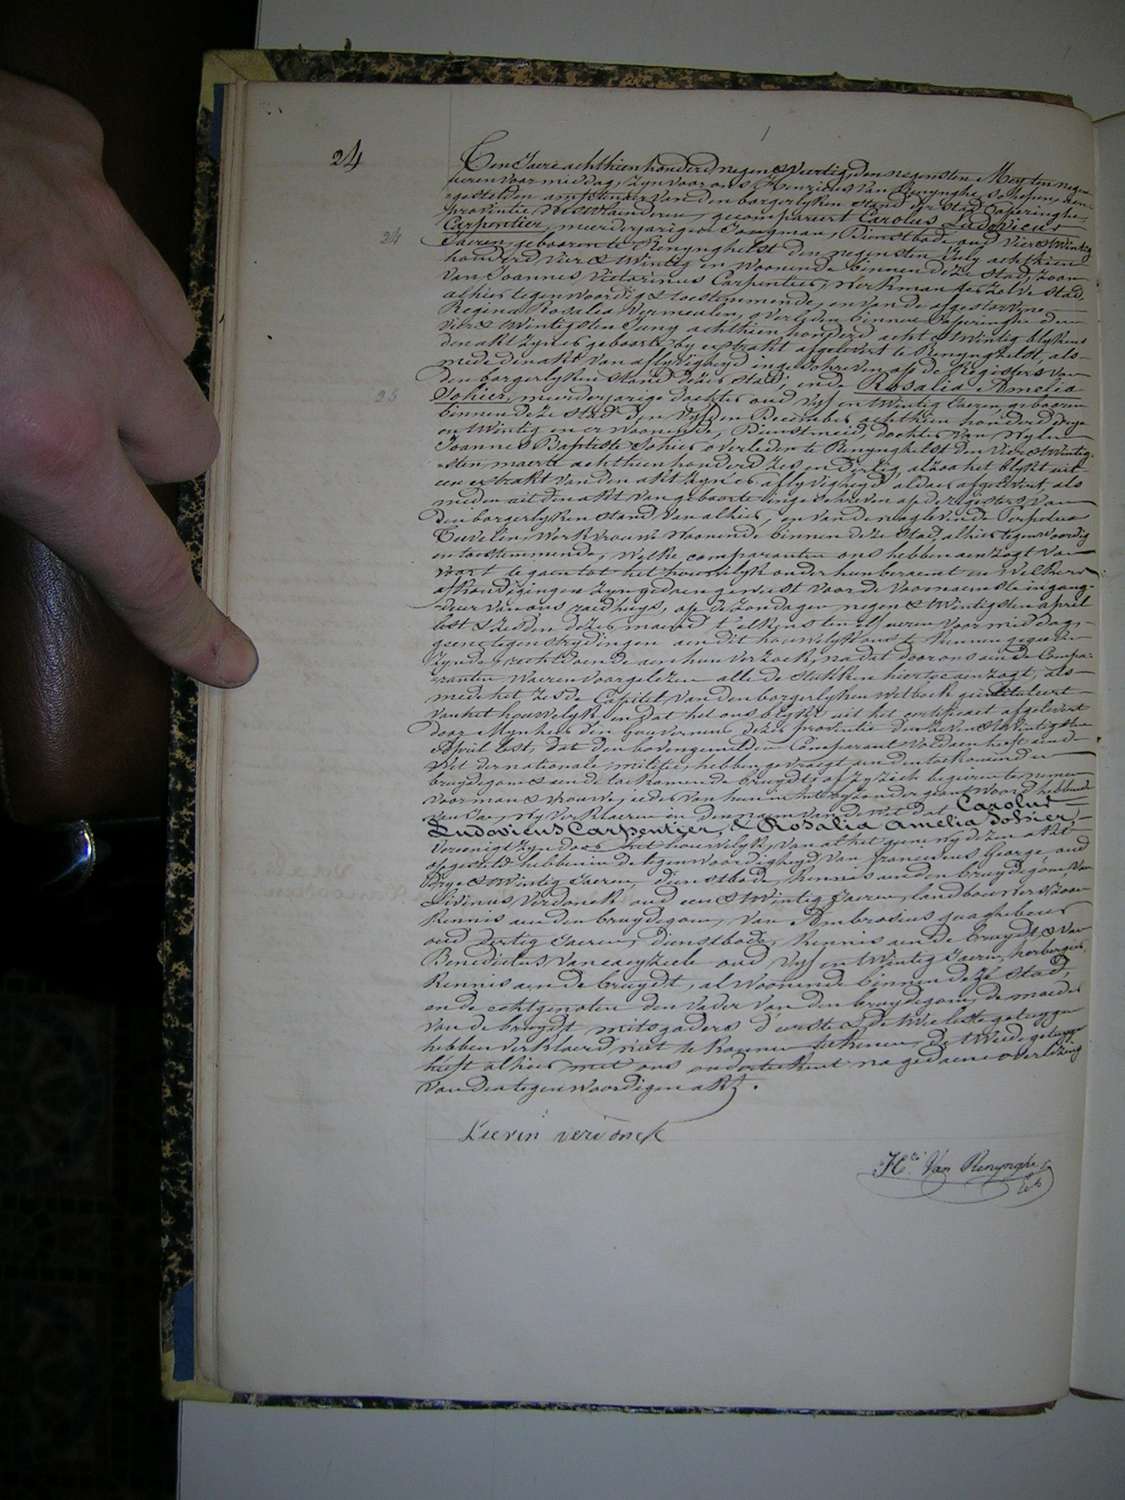 24
Ten Jaere achthien honderd negen & Veertig, den negensten Mey ten negen
ueren voor middag, zyn voor ons Henricus Van Renynghe, Schepen,
gestelden amptenaer van den borgerlyken Stand der Stad Poperinghe,
provintie Westvlaenderen, gecompareert Carolus Ludovicus
Carpentier, meerderjarigen Jongman, Dienstbode oud Vier & Wintig
24
Jaeren, gebooren te Renynghelst den negensten July achthien
honderd vier & Wintig en Woonende binnen deze Stad, zoon
van Joannes Victorinus Carpentier, Werkman ter zelve Stad,
alhier tegenwoordig & toestemmende, en van de afgestorvene
Regina Rosalia Vermeulen, overleden binnen Poperinghe den
Vier & Wintigsten Juny achthien honderd acht & Wintig blykens
den akt zyner geboorte by extrakt afgelevert te Renynghelst, als-
mede den akt van aflyvigheyd ingeschreven op de Registers van
den borgerlyken Stand dezer Stad; ende Rosalia Amelia
25
Sohier, meerderjarige dochter oud Vyf en Wintig Jaeren, gebooren
binnen deze Stad den Vyfden December achthien honderd drye
en Wintig en er Woonende, Dienstmeid, dochter van Wylen
Joannes Baptiste Sohier overleden te Renynghelst den Vier & Wintig-
sten maerte achthien honderd zes en dertig, alzoo het blykt uit
een extrakt van den akt zyner aflyvigheyd aldaer afgelevert, als
mede uit den akt van geboorte ingeschreven op de registers van
den borgerlyken Stand van alhier, en van de nog levende Perpetua
Tuvelin, Werkvrouwe Woonende binnen deze Stad, alhier tegenwoordig
en toestemmende, Welke comparanten ons hebben aenzogt van
voort te gaen tot het houwelyk onder hun beraemt en Welkers
afkondigingen zyn gedaen geweest voor de Voornaemste ingang-
deur van ons raedhuys, op de Zondagen negen & Wintigsten april
lest & zesden dezer maend t' elkens ten elf ueren voor middag,
geene tegenstrydingen aen dit houwelyk ons te kennen gegeven
zynde, rechtdoende aen hun verzoek, na dat door ons aen de Compa-
ranten Waeren voorgelezen alle de Stukken hiertoe aenzogt, als-
mede het zesde Capitel van den borgerlyken Wetboek geintituleert
van het houwelyk, en dat het ons blykt uit het certificaet afgelevert
door Mynheer den Gouverneur dezer provintie den zeven & Wintigsten
April lest, dat den bovengemelden Comparant Voldaen heeft aen de
Wet der nationale militie, hebben gevraegt aen den toekomenden
bruydegom & aen de toekomende bruydt; of zy zich begeeren te nemen
voor man & vrouwe; ieder van hun in het byzonder geantwoord hebbende
van Ja, Wy verklaeren in den naem van de Wet dat Carolus
Ludovicus Carpentier, & Rosalia Amelia Sohier,
Vereenigt zyn door het houwelyk, van al het gene wy dezen akt
opgesteld hebben in de tegenwoordigheyd van Franciscus George oud
drye & Wintig Jaeren, dienstbode, Kennis aen den bruydegom, van
Livinus Verdonck oud een & Wintig Jaeren, landbouwers Zoon
Kennis aen den bruydegom, van Ambrosius Quaghebeur
oud dertig Jaeren, Dienstbode, Kennis aen de bruydt, & van
Benedictus Vancaeyzeele oud Vyf en Wintig Jaeren, herbergier,
Kennis aen de bruydt, al Woonende binnen deze Stad;
en de echtgenoten den vader van den bruydegom, de moeder
van de bruydt mitsgaders d'eerste & de twee leste getuygen
hebben verklaerd niet te konnen teekenen, de tweede getuyge
heeft alhier met ons onderteekent na gedaene overlezing
van den tegenwoordigen akt.
Lievin verdonck
Hri Van Renynghe